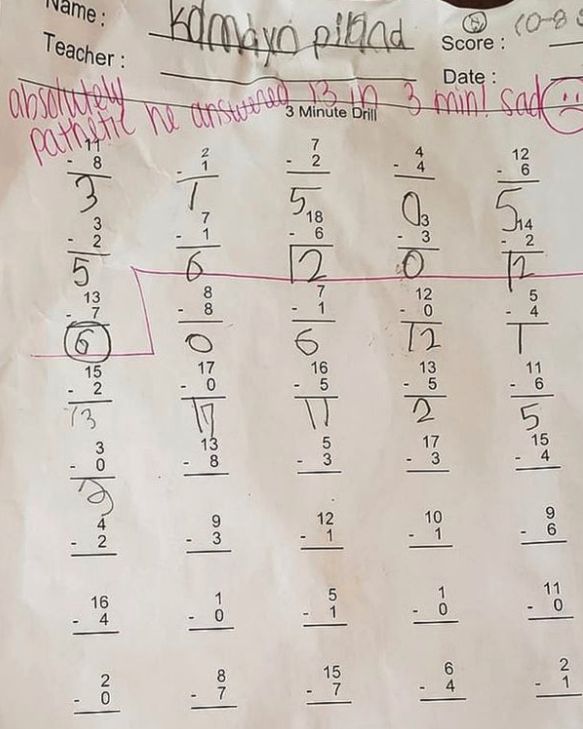 Name : Kamdyn piland
Score :
Teacher :
Date :
absolutely
pathetic he answered 13 in 3 min! sad
3 Minute Drill
11 2 7 4 12
- 8 - 1 - 2 - 4 - 6
3 1 5 0 5
3 7 18 3 14
- 2 - 1 - 6 - 3 - 2
5 6 12 0 12
13 8 7 12 5
- 7 - 8 - 1 - 0 - 4
6 0 6 12 1
15 17 16 13 11
- 2 - 0 - 5 - 5 - 6
13 17 11 2 5
3 13 5 17 15
- 0 - 8 - 3 - 3 - 4
3
4 9 12 10 9
- 2 - 3 - 1 - 1 - 6
16 1 5 1 11
- 4 - 0 - 1 - 0 - 0
2 8 15 6 2
- 0 - 7 - 7 - 4 - 1